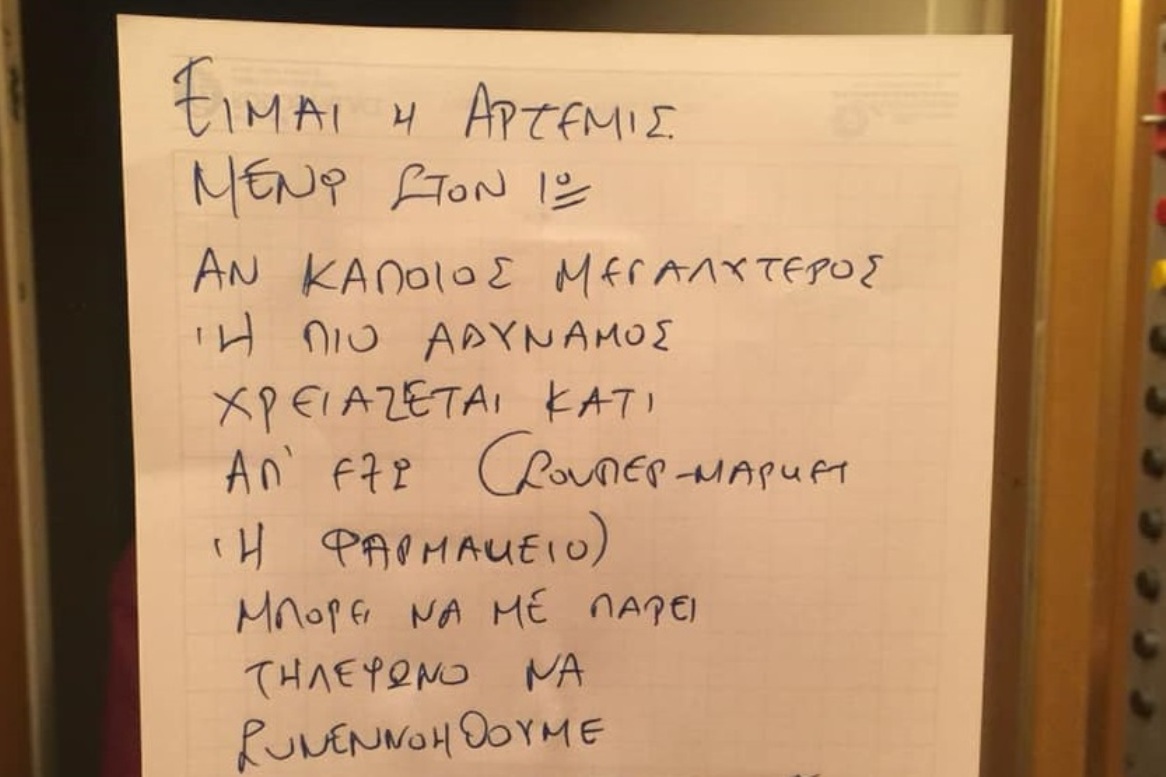 ΕΙΜΑΙ Η ΑΡΤΕΜΙΣ.
ΜΕΝΩ ΣΤΟΝ 1º
ΑΝ ΚΑΠΟΙΟΣ ΜΕΓΑΛΥΤΕΡΟΣ
Ή ΠΙΟ ΑΔΥΝΑΜΟΣ
ΧΡΕΙΑΖΕΤΑΙ ΚΑΤΙ
ΑΠ' ΕΞΩ (ΣΟΥΠΕΡ-ΜΑΡΚΕΤ
Ή ΦΑΡΜΑΚΕΙΟ)
ΜΠΟΡΕΙ ΝΑ ΜΕ ΠΑΡΕΙ
ΤΗΛΕΦΩΝΟ ΝΑ
ΣΥΝΕΝΝΟΗΘΟΥΜΕ